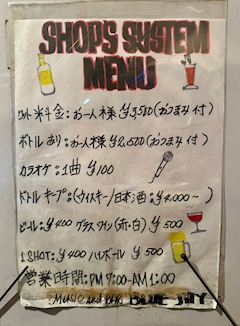 SHOP'S SYSTEM
MENU
セット料金:お一人様 ¥3,500(おつまみ付)
ボトルあり:お一人様¥2,500(おつまみ付)
カラオケ:1曲 ¥100
ボトルキープ:(ウイスキー/日本酒:¥4,000~)
ビール:¥400 グラスワイン(赤・白) ¥500
1SHOT:¥400 ハイボール ¥500
営業時間:PM7:00-AM1:00
MUSIC and BAR BLUE JAY